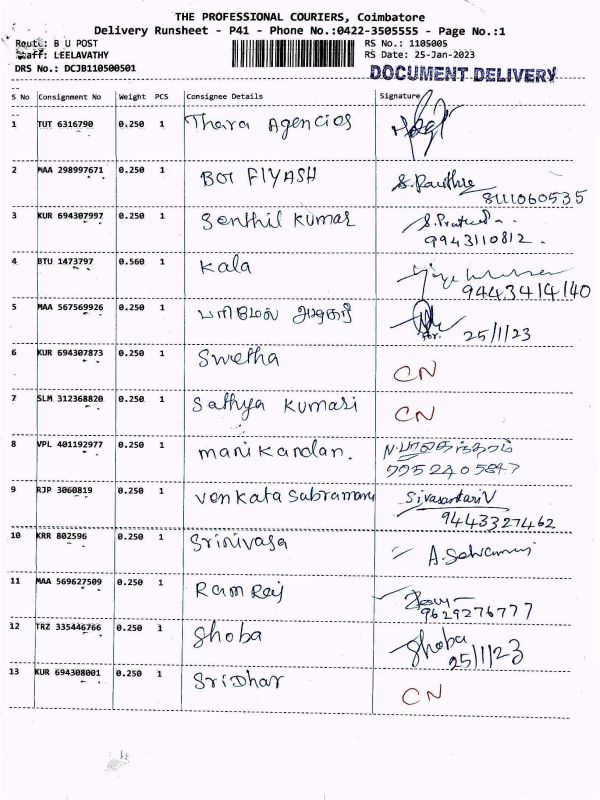 THE PROFESSIONAL COURIERS, Coimbatore
Delivery Runsheet - P41 - Phone No.:0422-3505555 - Page No.:1
Route: B U POST RS No.: 1105005
Staff: LEELAVATHY RS Date: 25-Jan-2023
DRS No.: DCJB110500501 DOCUMENT DELIVERY
S No Consignment No Weight PCS Consignee Details Signature
1 TUT 6316790 0.250 1 Thara Agencies
2 MAA 298997671 0.250 1 BOI FIYASH
8111060535
3 KUR 694307997 0.250 1 Senthil Kumar
9943110812.
4 BTU 1473797 0.560 1 Kala
9443414140
5 MAA 567569926 0.250 1
for. 25/1/23
6 KUR 694307873 0.250 1 Swetha CN
7 SLM 312368820 0.250 1 Sathya Kumari CN
8 VPL 401192977 0.250 1 manikandan.
9952405847
9 RJP 3060819 0.250 1 Venkata Subramani SivasankariV
9443327462
10 KRR 802596 0.250 1 Srinivasa
11 MAA 569627509 0.250 1 Ram Raj
9629276777
12 TRZ 335446766 0.250 1 Shoba Shoba
25/1/23
13 KUR 694308001 0.250 1 Sridhar CN